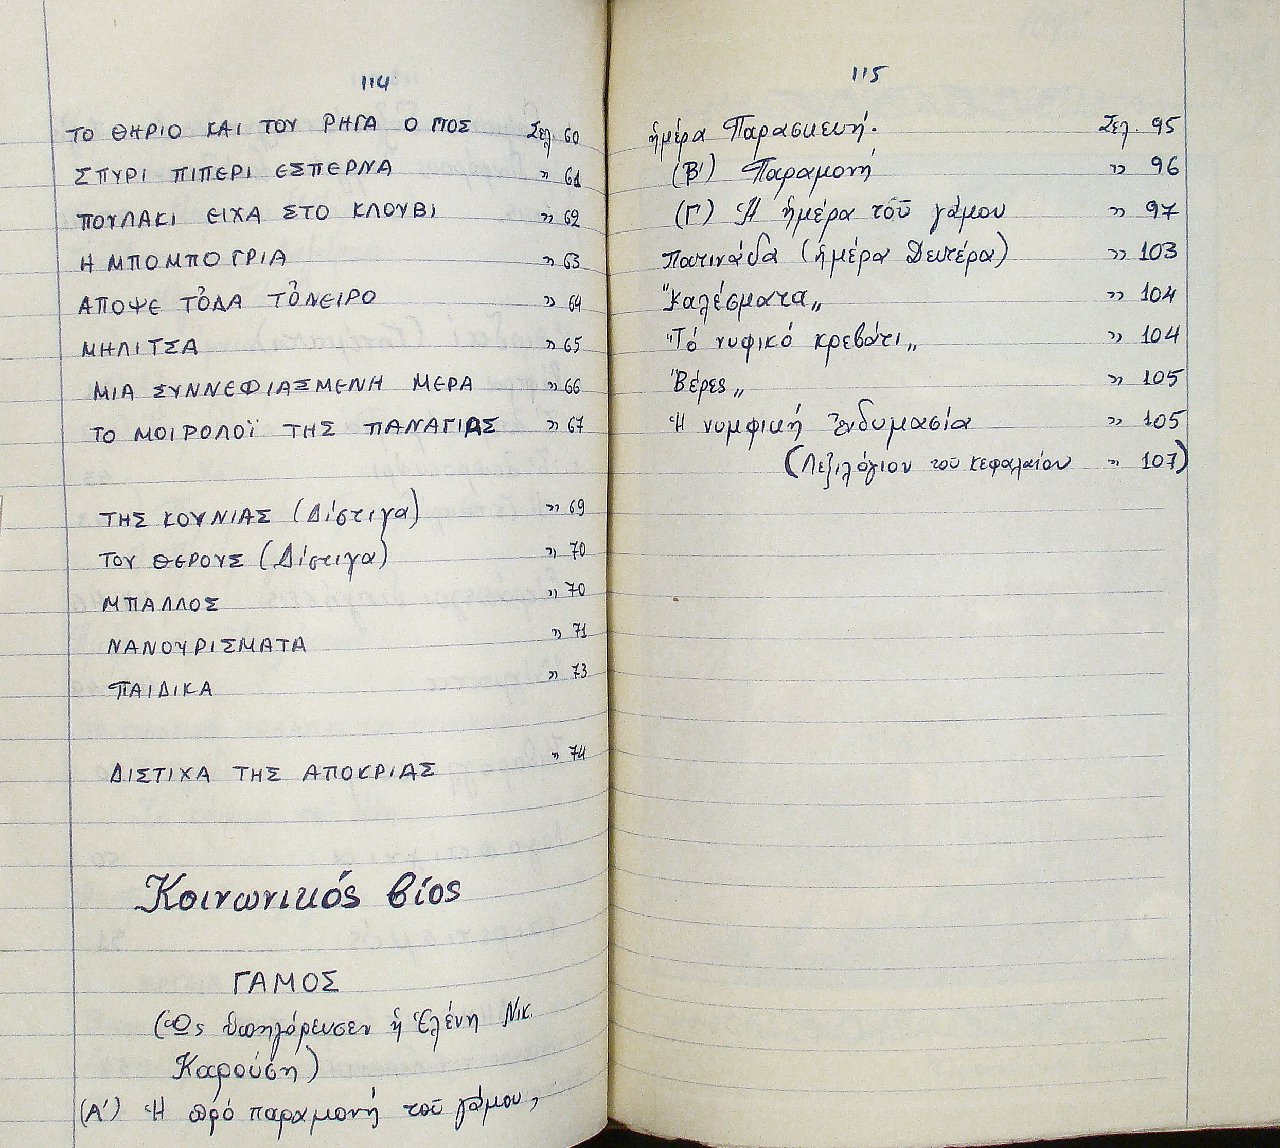 114
ΤΟ ΘΗΡΙΟ ΚΑΙ ΤΟΥ ΡΗΓΑ Ο ΓΙΟΣ Σελ. 60
ΣΠΥΡΙ ΠΙΠΕΡΙ ΕΣΠΕΡΝΑ » 61
ΠΟΥΛΑΚΙ ΕΙΧΑ ΣΤΟ ΚΛΟΥΒΙ » 62
Η ΜΠΟΜΠΟΓΡΙΑ » 63
ΑΠΟΨΕ ΤὈΔΑ ΤὈΝΕΙΡΟ » 64
ΜΗΛΙΤΣΑ » 65
ΜΙΑ ΣΥΝΝΕΦΙΑΣΜΕΝΗ ΜΕΡΑ » 66
ΤΟ ΜΟΙΡΟΛΟΪ ΤΗΣ ΠΑΝΑΓΙΑΣ » 67
ΤΗΣ ΚΟΥΝΙΑΣ (Δίστιχα) » 69
ΤΟΥ ΘΕΡΟΥΣ (Δίστιχα) » 70
ΜΠΑΛΛΟΣ » 70
ΝΑΝΟΥΡΙΣΜΑΤΑ » 71
ΠΑΙΔΙΚΑ » 73
ΔΙΣΤΙΧΑ ΤΗΣ ΑΠΟΚΡΙΑΣ » 74
Κοινωνικός βίος
ΓΑΜΟΣ
(Ὡς ὑπηγόρευσεν ἡ Ἑλένη Νικ.
Καρούση)
(Α') Ἡ πρό παραμονή τοῦ γάμου,
115
ἡμέρα Παρασκευή. Σελ. 95
(Β') Παραμονή » 96
(Γ') Ἡ ἡμέρα τοῦ γάμου » 97
Πατινάδα (ἡμέρα Δευτέρα) » 103
"Καλέσματα„ » 104
"Τό νυφικό κρεβάτι„ » 104
"Βέρες„ » 105
Ἡ νυμφική ἐνδυμασία » 105
(Λεξιλόγιον τοῦ κεφαλαίου » 107)